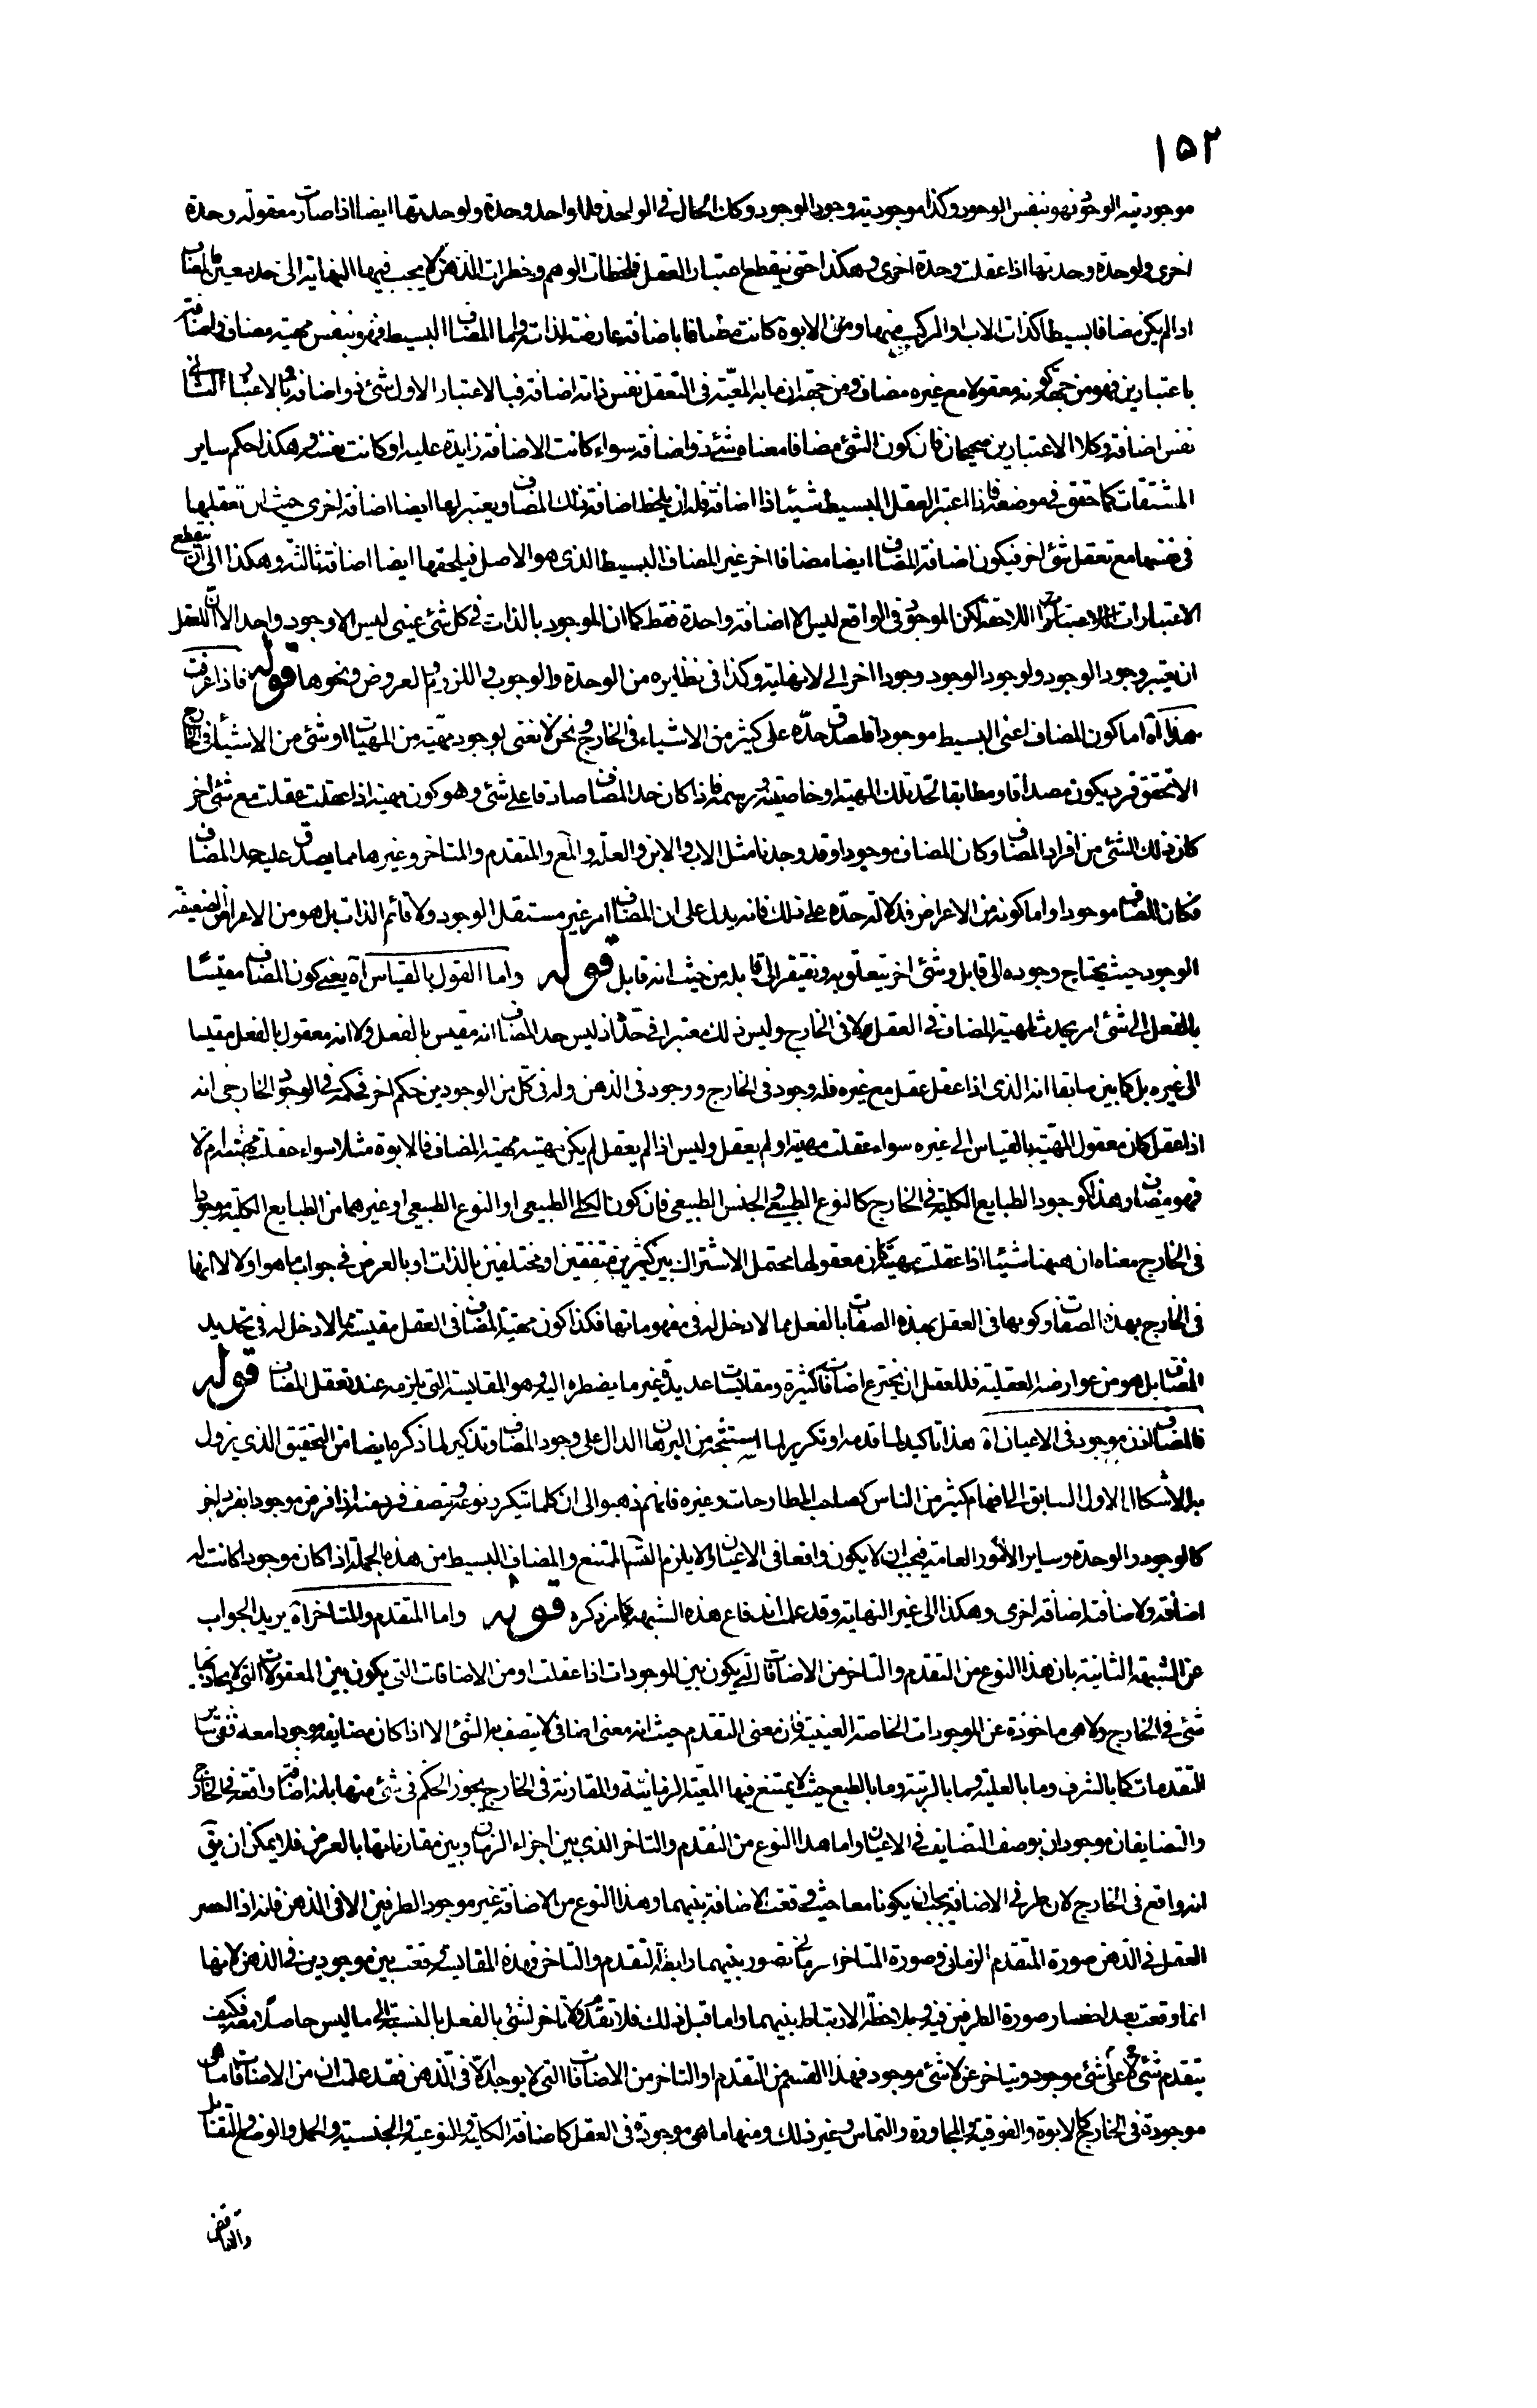 ١٥٢
موجوديته الوجود فهو بنفس الوجود وكذا موجودية وجود الوجود وكذا الحال في الواحد فللواحد وحدة ولوحدتها ايضا اذا صارت معقولة وحدة
اخرى ولوحدة وحدتها اذا عقلت وحدة اخرى وهكذا حتى ينقطع اعتبار العقل فلحظات الوهم وخطرات الذهن لا يجب فيها النهاية الى حد معين فالمضاف
اذا لم يكن مضافا بسيطا كذات الاب او المركب منها ومن الابوة كانت مضافا باضافة عارضة لذاته واما المضاف البسيط فهو بنفس مهيته مضاف واضافته
باعتبارين فهو من جهة كونه معقولا مع غيره مضاف ومن جهة ان ما به المعية في التعقل نفس ذاته اضافة فبالاعتبار الاول شئ ذو اضافة وبالاعتبار الثاني
نفس اضافة وكلا الاعتبارين صحيحان فان كون الشئ مضافا معناه شئ ذو اضافة سواء كانت الاضافة زايدة عليه او كانت نفسه وهكذا حكم ساير
المشتقات كما حقق في موضعه فاذا اعتبر العقل البسيط شيئا ذا اضافة فله ان يلحظ اضافة ذلك المضاف ويعتبر لها ايضا اضافة اخرى حيث ان تعقلها
في نفسها مع تعقل شئ اخر فيكون اضافة المضاف ايضا مضافا اخر غير المضاف البسيط الذى هو الاصل فيلحقها ايضا اضافة ثالثة وهكذا الى ان ينقطع
الاعتبارات اللاحقة لكن الموجود في الواقع ليس الا اضافة واحدة فقط كما ان الموجود بالذات في كل شئ عينى ليس الا وجود واحد الا ان للعقل
ان يعتبر وجود الوجود ولوجود الوجود وجودا اخر الى لا نهاية وكذا في نظايره من الوحدة والوجوب واللزوم والعروض ونحوها قوله فاذا عرفت
هذا آه اما كون المضاف اعنى البسيط موجودا فلصدق حده على كثير من الاشياء في الخارج ونحن لا نعنى بوجود مهية من المهيات او شئ من الاشياء في الخارج
الا تحقق فرد يكون مصداقا ومطابقا لحد تلك المهية او خاصيته ورسمه فاذا كان حد المضاف صادقا على شئ وهو كون مهيته اذا عقلت عقلت مع شئ اخر
كان ذلك الشئ من افراد المضاف وكان المضاف موجودا وقد وجدنا مثل الاب والابن والعلة والمع والمتقدم والمتاخر وغيرها مما يصدق عليه حد المضاف
فكان المضاف موجودا واما كونه من الاعراض فدلالة حده على ذلك فانه يدل على ان المضاف امر غير مستقل الوجود ولا قائم الذات بل هو من الاعراض الضعيفة
الوجود حيث يحتاج وجوده الى قابل وشئ اخر يتعلق به ويفتقر الى قابله من حيث انه قابل قوله واما القول بالقياس آه يعنى كون المضاف مقيسا
بالفعل الى شئ امر يحدث لمهية المضاف في العقل لا في الخارج وليس ذلك معتبرا في حده اذ ليس حد المضاف انه مقيس بالفعل ولا انه معقول بالفعل مقيسا
الى غيره بل كما بين سابقا انه الذى اذا عقل عقل مع غيره فله وجود في الخارج ووجود في الذهن وله في كل من الوجودين حكم اخر فحكمه في الوجود الخارجى انه
اذا عقل كان معقول المهية بالقياس الى غيره سواء عقلت مهيته او لم يعقل وليس اذا لم يعقل لم يكن مهيته مهية المضاف فالابوة مثلا سواء عقلت مهيته ام لا
فهو مضاف وهذا كوجود الطبايع الكلية في الخارج كالنوع الطبيعى والجنس الطبيعى فان كون الكلى الطبيعى او النوع الطبيعى او غيرهما من الطبايع الكلية موجودا
في الخارج معناه ان ههنا شيئا اذا عقلت مهيته كان معقولها محتمل الاشتراك بين كثيرين متفقين او مختلفين بالذات او بالعرض في جواب ما هو او لا لا انها
في الخارج بهذه الصفات وكونها في العقل بهذه الصفات بالفعل مما لا دخل له في مفهوماتها فكذا كون مهية المضاف في العقل مقيسة مما لا دخل له في تحديد
المضاف بل هو من عوارضه العقلية فللعقل ان يخترع اضافات كثيرة ومقايسات عديدة غير ما يضطره اليه وهو المقايسة التى يلزمه عند تعقل المضاف قوله
فالمضاف اذن موجود في الاعيان آه هذا تاكيد لما قدمه او تكرير لما استنتجه من البرهان الدال على وجود المضاف وتذكير لما ذكره ايضا من التحقيق الذى يزول
به الاشكال الاول السابق الى افهام كثير من الناس كصاحب المطارحات وغيره فانهم ذهبوا الى ان كلما يتكرر نوعه ويتصف فرد منه اذا فرض موجودا بفرد اخر
كالوجود والوحدة وساير الامور العامة فيجب ان لا يكون واقعا في الاعيان والا يلزم التسلسل الممتنع والمضاف البسيط من هذه الجملة اذا كان موجودا كانت له
اضافة ولاضافته اضافة اخرى وهكذا الى غير النهاية وقد علمت اندفاع هذه الشبهة بما مر ذكره قوله واما المتقدم والمتاخر آه يريد الجواب
عن الشبهة الثانية بان هذا النوع من التقدم والتاخر من الاضافات التى يكون بين الموجودات اذا عقلت او من الاضافات التى يكون بين المعقولات التى لا يحاذيها
شئ في الخارج ولا هى ماخوذة عن الموجودات الخاصة العينية فان معنى التقدم حيث انه معنى اضافى لا يتصف به الشئ الا اذا كان مضايفه موجودا معه ففى ساير
التقدمات كما بالشرف وما بالعلية وما بالرتبة وما بالطبع حيث لا يمتنع فيها المعية الزمانية والمقارنة في الخارج يجوز الحكم في شئ منها بانه اضافة واقعة في الخارج
والمتضايفان موجودان بوصف التضايف في الاعيان واما هذا النوع من التقدم والتاخر الذى بين اجزاء الزمان وبين مقارناتها بالعرض فلا يمكن ان يق
انه واقع في الخارج لان طرفى الاضافة يجب ان يكونا معا حيث وقعت الاضافة بينهما وهذا النوع من الاضافة غير موجود الطرفين الا في الذهن فانه اذا احضر
العقل في الذهن صورة المتقدم الزمانى وصورة المتاخر الزمانى تصور بينهما رابطة التقدم والتاخر فهذه المقايسة وقعت بين موجودين في الذهن لانها
انما وقعت بعد احضار صورة الطرفين فيه وملاحظة الارتباط بينهما واما قبل ذلك فلا تقدم ولا تاخر لشئ بالفعل بالنسبة الى ما ليس حاصلا معه فكيف
يتقدم شئ على لا شئ موجود ويتاخر عن لا شئ موجود فهذا القسم من التقدم او التاخر من الاضافات التى لا يوجد الا في الذهن فقد علمت ان من الاضافات ما هى
موجودة في الخارج كالابوة والفوقية والمجاورة والتماس وغير ذلك ومنها ما هى موجودة في العقل كاضافة الكلية والنوعية والجنسية والحمل والوضع والتقابل
والتناقض